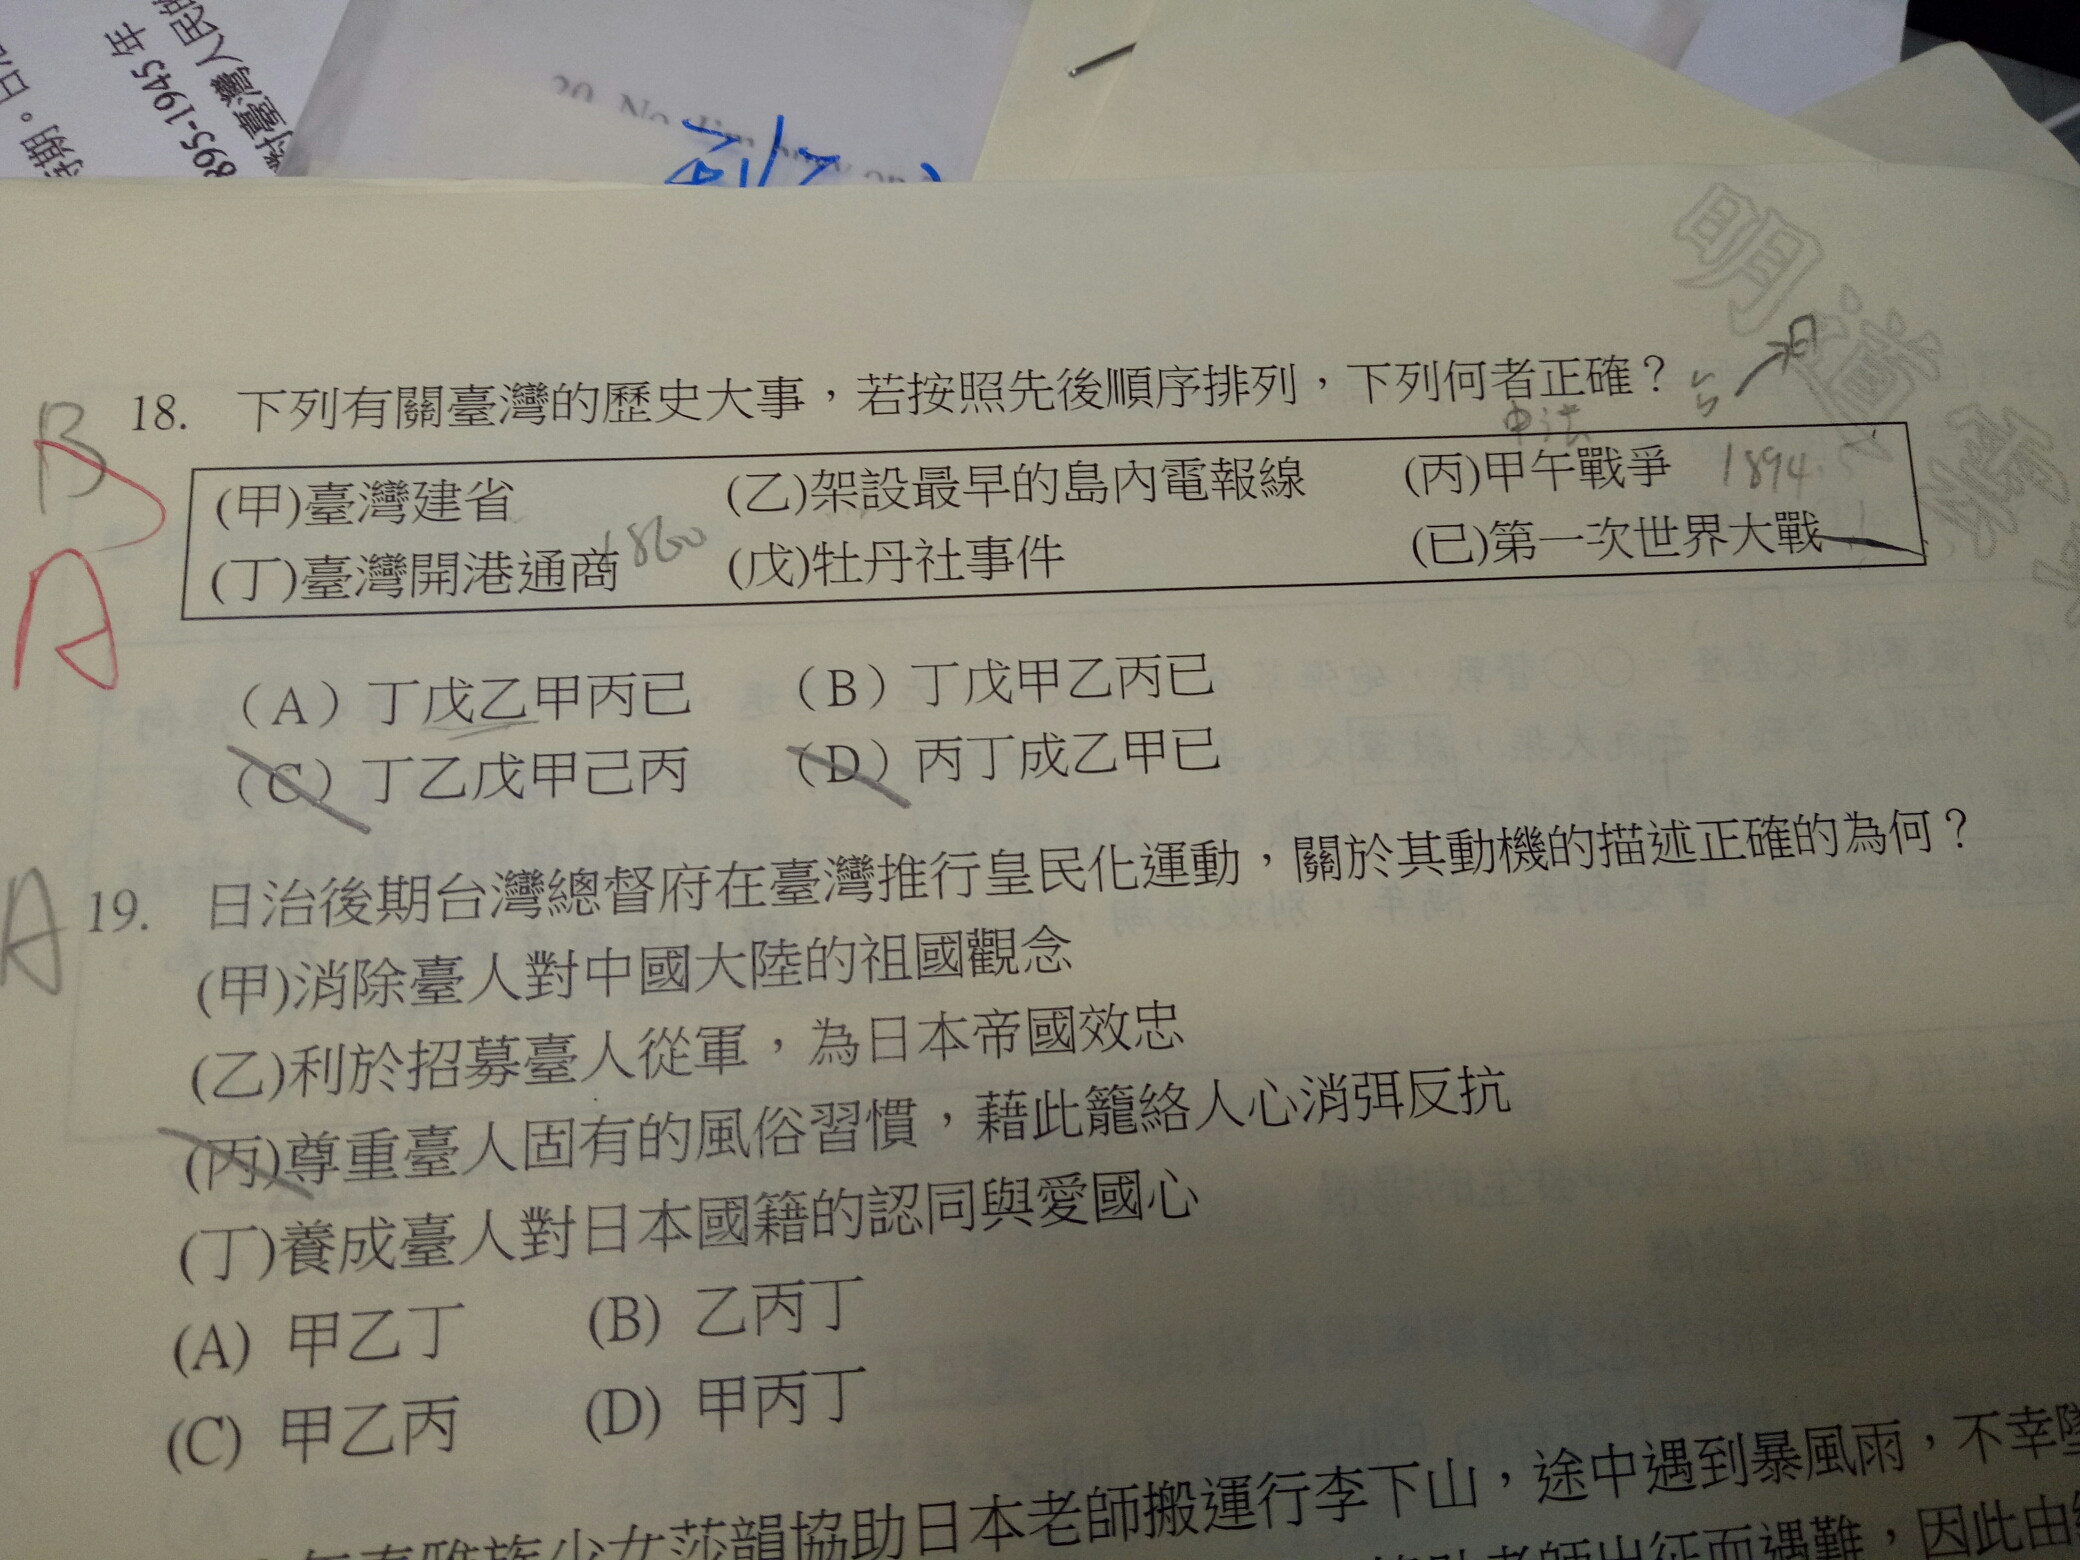 895-1945年
對臺灣人民
20. No
明道
18. 下列有關臺灣的歷史大事，若按照先後順序排列，下列何者正確？
中法
B
A
(甲)臺灣建省 (乙)架設最早的島內電報線 (丙)甲午戰爭 1894
(丁)臺灣開港通商 1860 (戊)牡丹社事件 (已)第一次世界大戰
（A）丁戊乙甲丙已 （B）丁戊甲乙丙已
（C）丁乙戊甲己丙 （D）丙丁成乙甲已
A
19. 日治後期台灣總督府在臺灣推行皇民化運動，關於其動機的描述正確的為何？
(甲)消除臺人對中國大陸的祖國觀念
(乙)利於招募臺人從軍，為日本帝國效忠
(丙)尊重臺人固有的風俗習慣，藉此籠絡人心消弭反抗
(丁)養成臺人對日本國籍的認同與愛國心
(A) 甲乙丁 (B) 乙丙丁
(C) 甲乙丙 (D) 甲丙丁
少女莎韻協助日本老師搬運行李下山，途中遇到暴風雨，不幸
老師出征而遇難，因此由